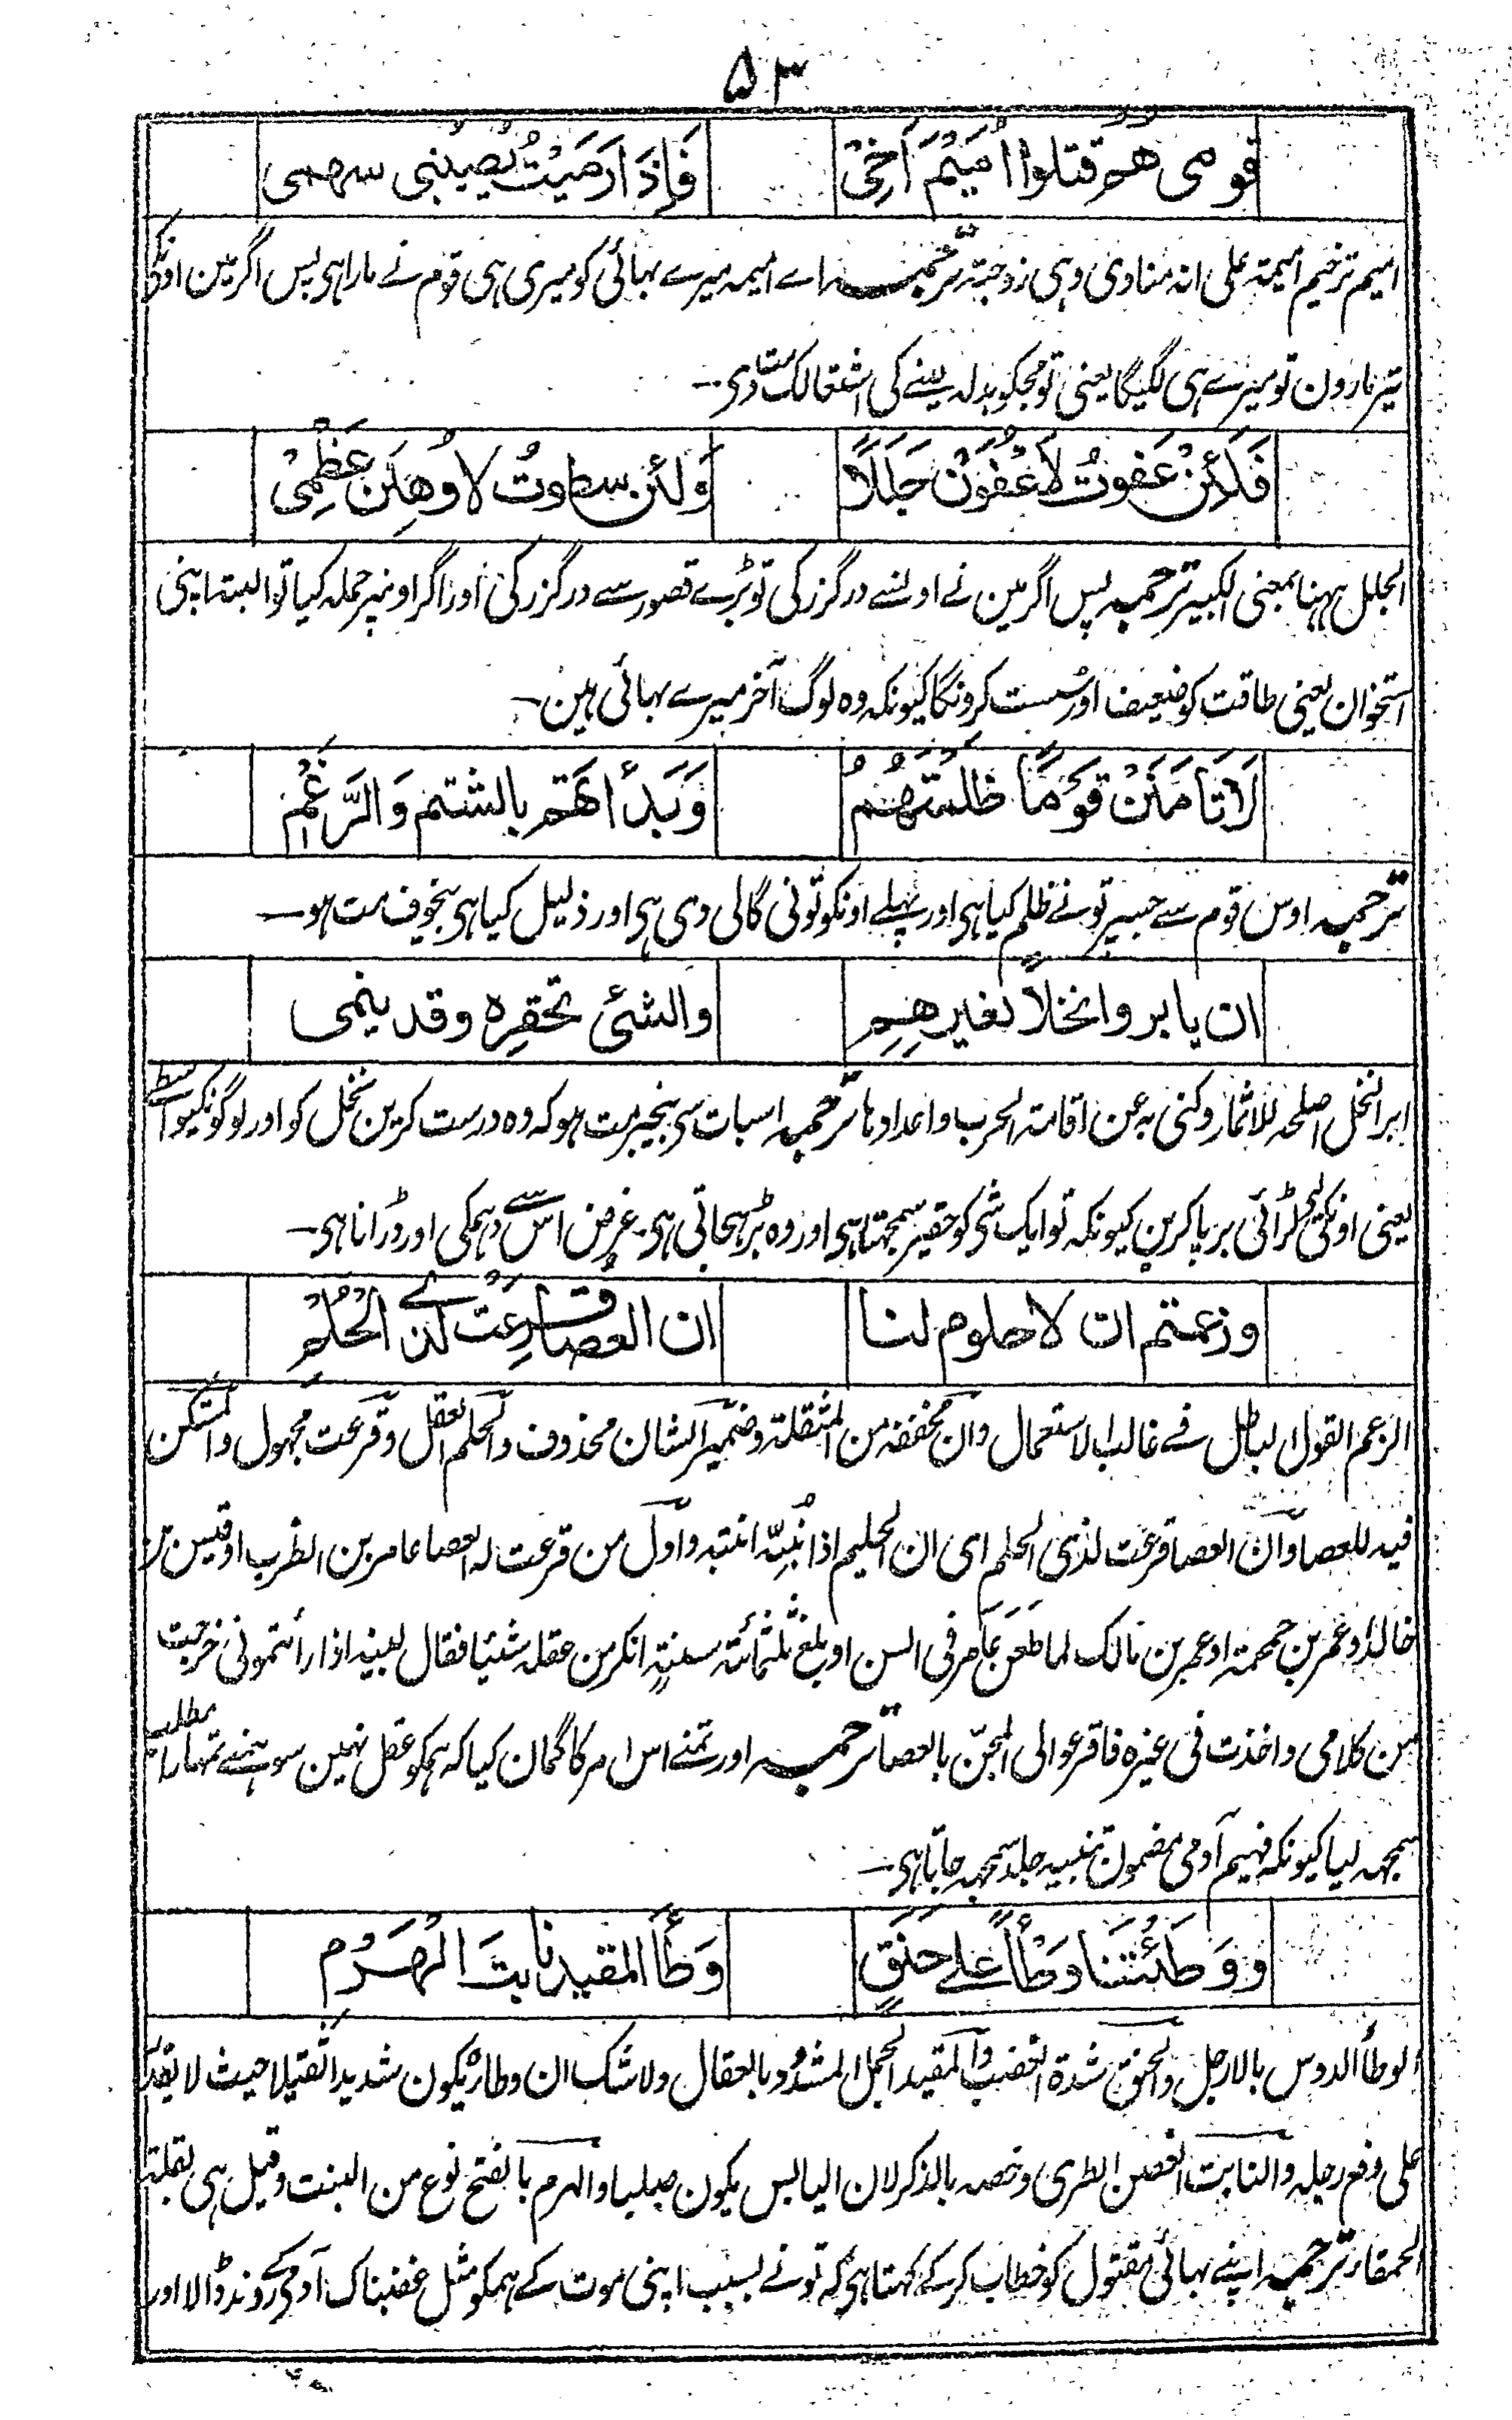 ۵۳
قومی هم قتلوا امَیْمَ اَخِیْ فَاِذَا رَمَیْتُ یُصِیْبُنِی سهمی
امیم ترخیم امیمتہ علی انہ منادی وہی زوجتہ ترجمہ اے امیمہ میرے بہائی کو میری ہی قوم نے مارا ہی پس اگر مین اونکو
تیر مارون تو میرے ہی لگیگا یعنی تو مجکو بدلہ لینے کی اشتعالک مت دی۔
فَلَئِنْ عَفَوتُ لَاَعْفُوَنْ جَلَلًا وَلَئن سطوتُ لَاُوهِنَن عَظْمِیْ
الجلل ہہنا بمعنی الکبیر ترجمہ پس اگر مین نے اونسے درگزر کی تو بڑے قصور سے درگزر کی اور اگر اونپر حملہ کیا تو البتہ اپنی
استخوان یعنی طاقت کو ضعیف اور سست کرونگا کیونکہ وہ لوگ آخر میرے بہائی ہین۔
لَا تَا مَنَنْ قَوْمًا ظَلَمْتَهُمُ وَبَدَأْتَهُم بالشتم وَالرَّغْمِ
ترجمہ اوس قوم سے جسپر تو نے ظلم کیا ہی اور پہلے اونکو تونی گالی دی ہی اور ذلیل کیا ہی بیخوف مت ہو۔
ان یابروا نخلًا لغیرهِمِ والشئ تحقرہ وقد ینمی
ابر النخل اصلحہ للاثمار وکنی بہ عن اقامتہ الحرب واعدادہا ترجمہ اسبات سی بیخبر مت ہو کہ وہ درست کرین نخل کو اور لوگونکیواسطے
یعنی اونکی لیے لڑائی برپا کرین کیونکہ تو ایک شی کو حقیر سمجہتا ہی اور وہ بڑہجاتی ہی۔ غرض اس سے دہمکی اور ڈرانا ہی۔
وزعمتم ان لا حلوم لنا ان العصا قُرِعَت لذی الحُلْمِ
الزعم القول الباطل فے غالب الاستعمال وان مخففہ من المثقلتہ وضمیر الشان محذوف والحلم العقل وقرعت مجہول والمستکن
فیہ للعصا وان العصا قرعت لذی الحلم ای ان الحلیم اذا نُبِّہ انتبہ واول من قرعت لہ العصا عامر بن الظرب او قیس بن
خالد او عمر بن حممتہ او عمر بن مالک لما طعن عامر فی السن او بلغ ثلثمائتہ سنتہٍ انکر من عقلہ شیئا فقال لبنیہ اذا رأیتمونی خرجت
من کلامی واخذت فی غیرہ فاقرعوا لی المجن بالعصا ترجمہ اور تمنے اس امر کا گمان کیا کہ ہمکو عقل نہین سو ہمنے تمہارا مطلب
سمجہہ لیا کیونکہ فہیم آدمی مضمون تنبیہ جلد سمجہہ جاتا ہی۔
وَوَطَئتَنا وَطْأً عَلے حَنَقٍ وَطْأَ المقیدِ نابتَ الهَرْمِ
الوطأ الدوس بالارجل والحنق شدة الغضب والمقید الجمل المشدود بالعقال ولا شک ان وطاہ یکون شدیدا ثقیلا حیث لا یقدر
علی رفع رجلہ والنابت الغصن الطری وخصہ بالذکر لان الیابس یکون صلبا والہرم بالفتح نوع من النبت وقیل ہی بقلتہ
الحمقاء ترجمہ اپنے بہائی مقتول کو خطاب کرکے کہتا ہی کہ تو نے بسبب اپنی موت کے ہمکو مثل غضبناک آدمی کے روند ڈالا اور